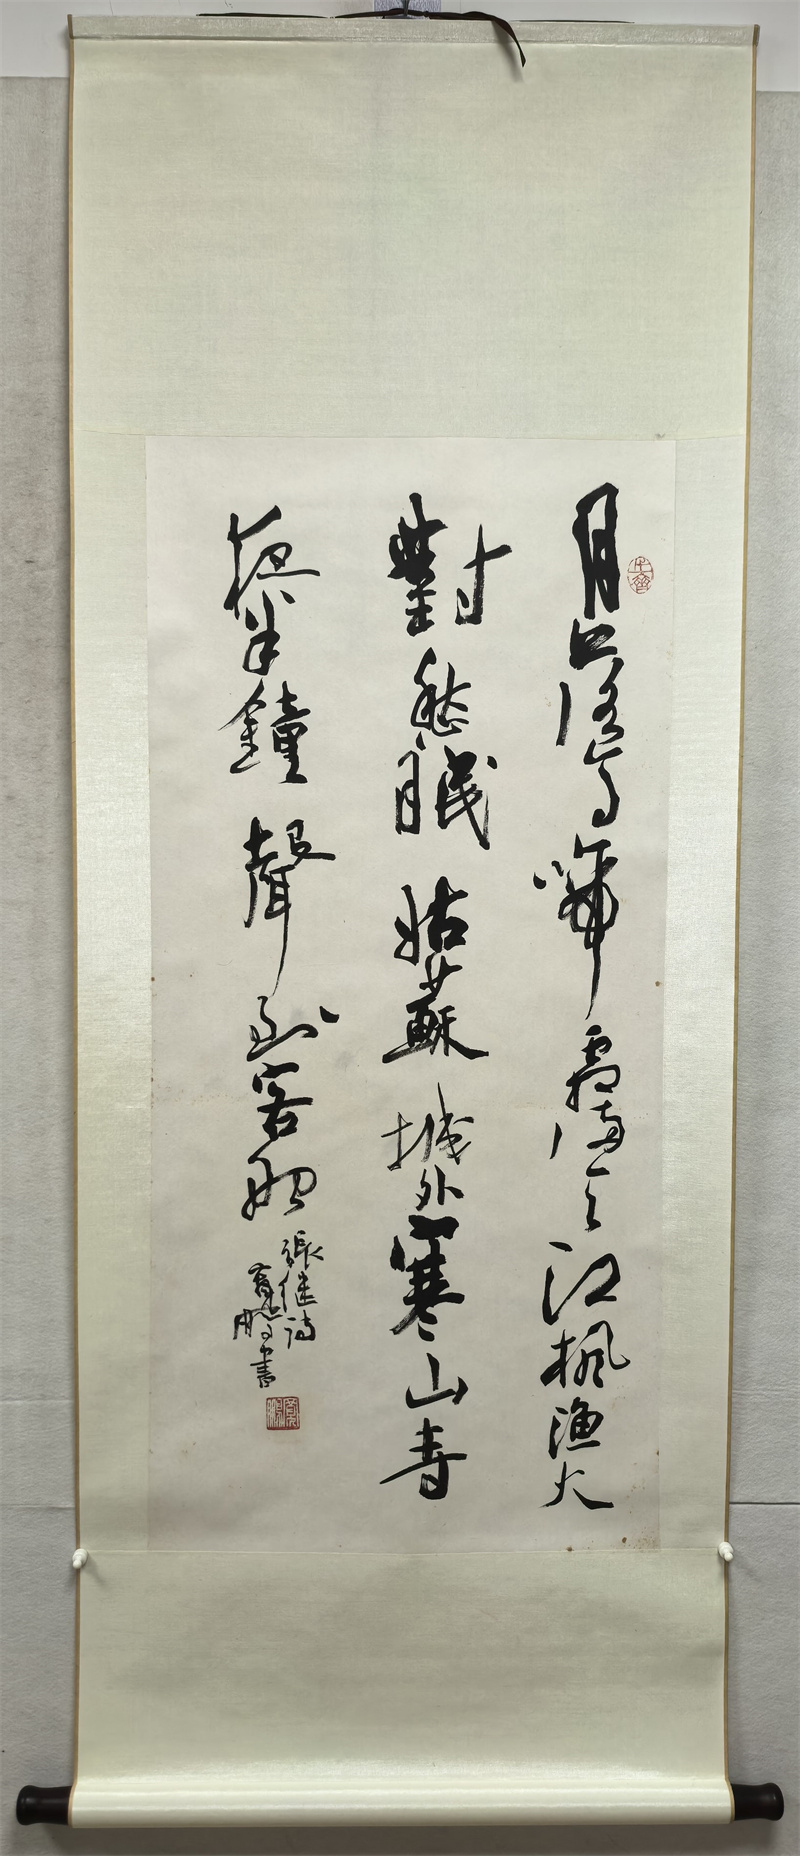 月落烏啼霜滿天江楓漁火
對愁眠姑蘇城外寒山寺
夜半鐘聲到客船
張继詩
鵬書